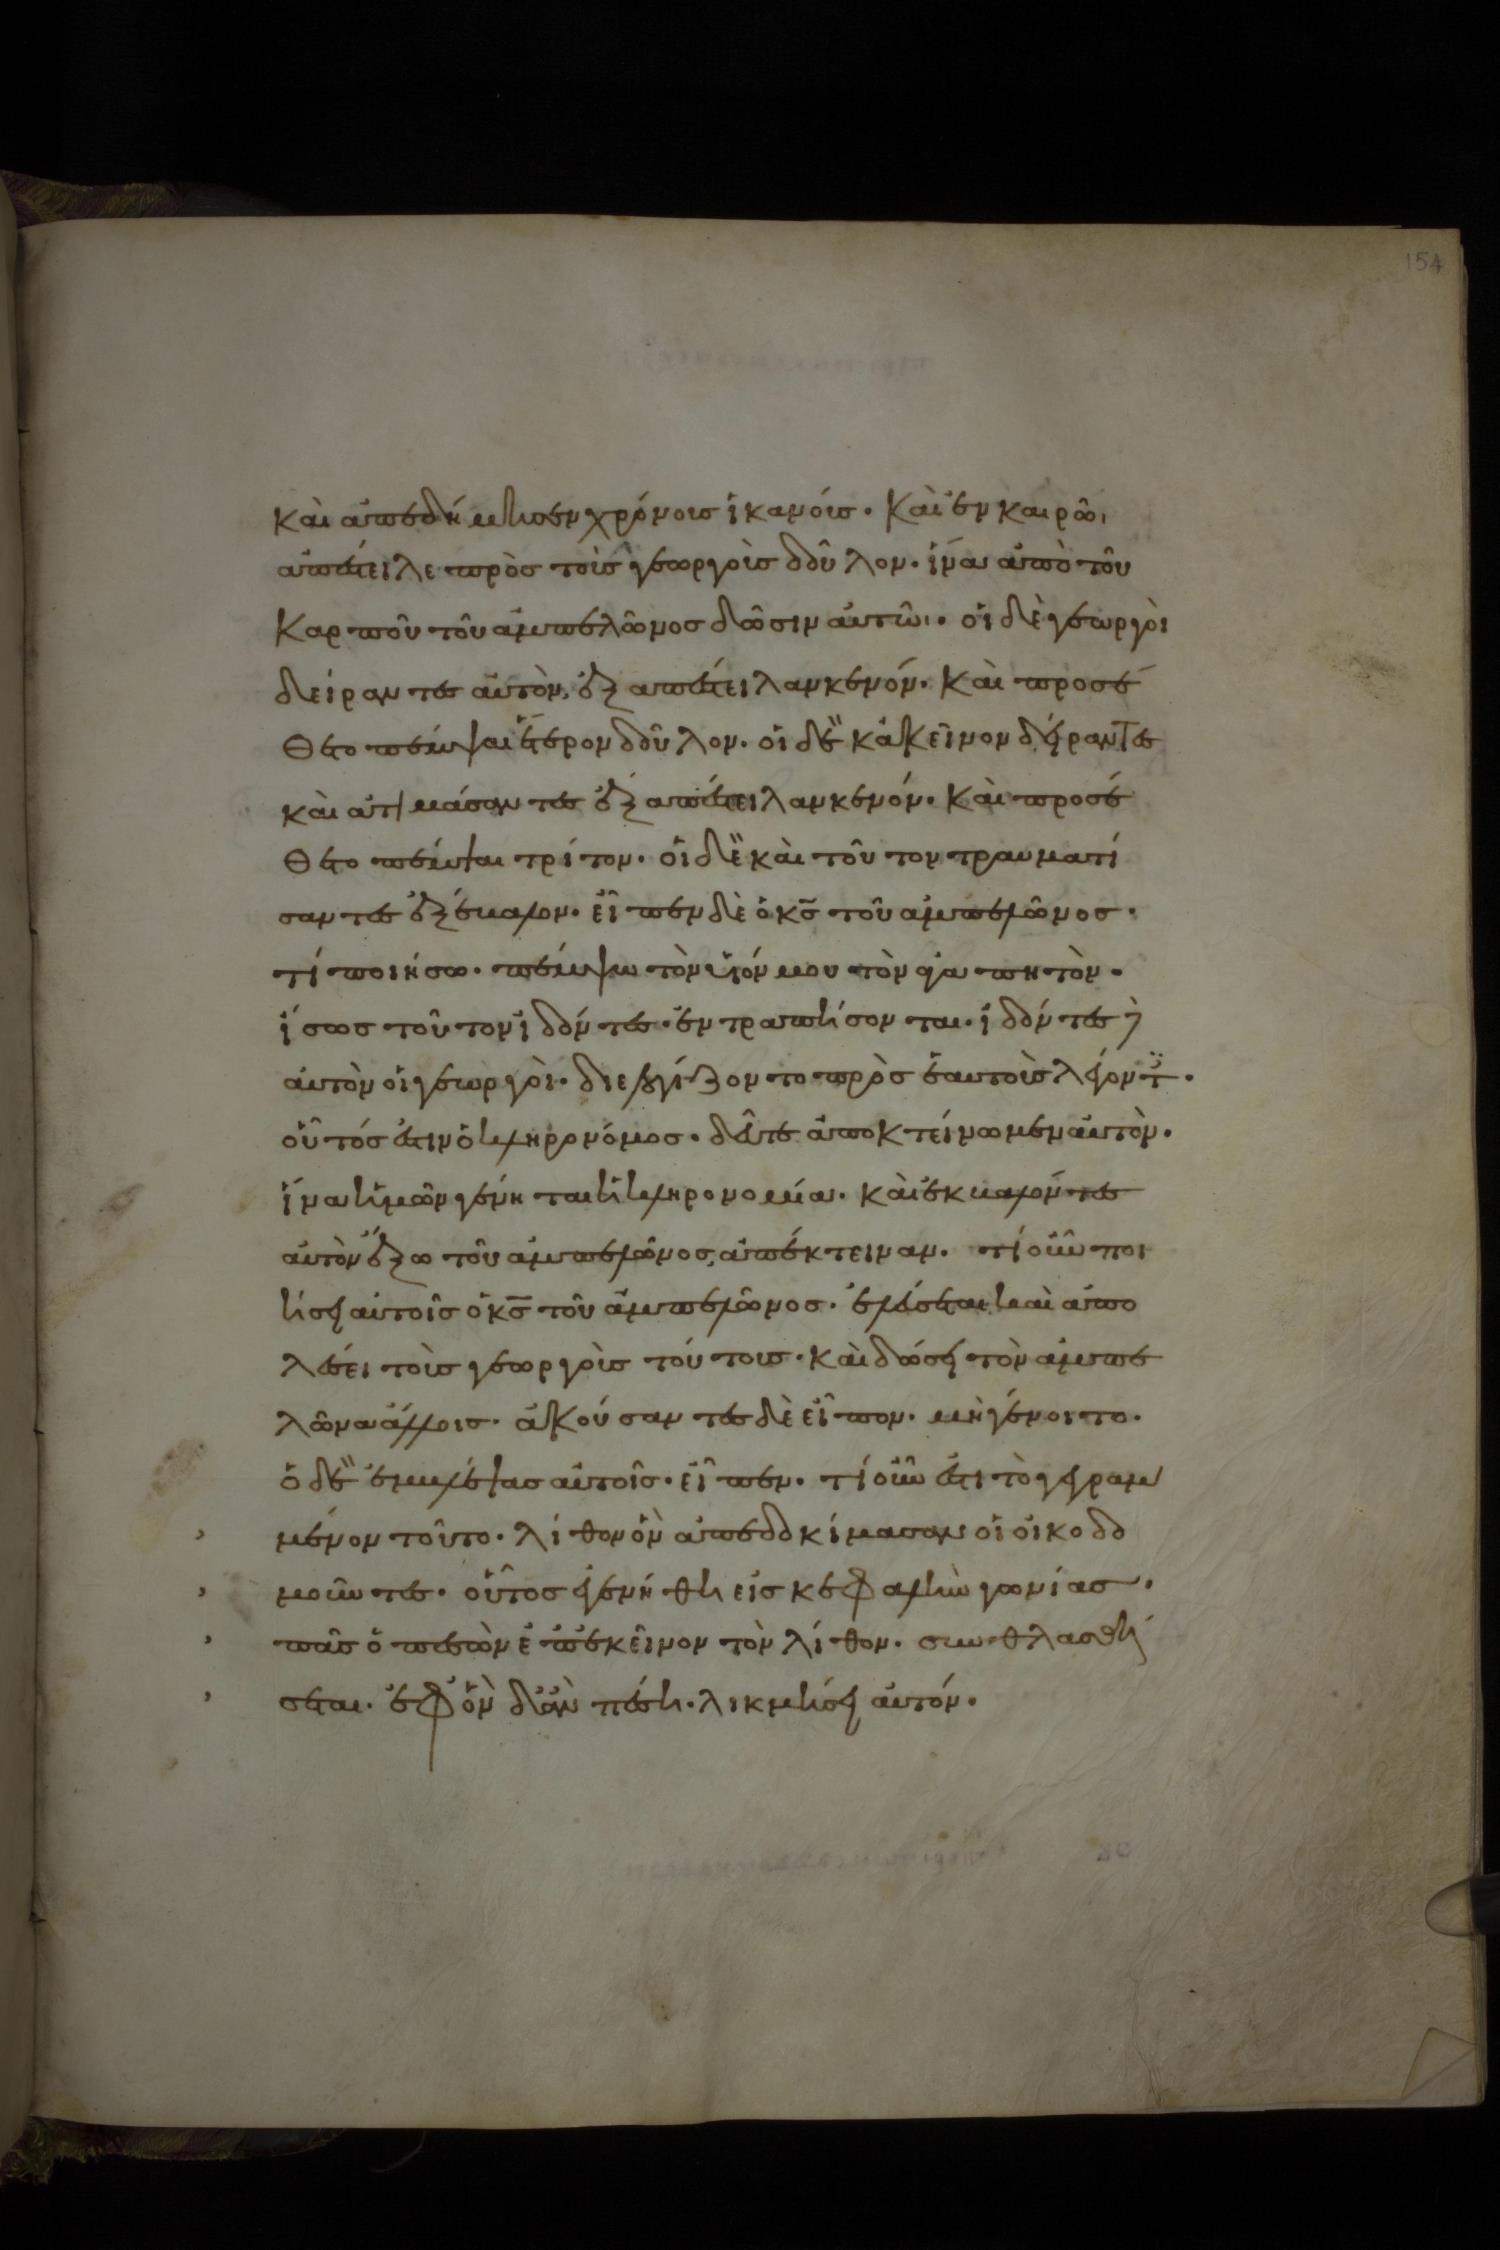 154
καὶ ἀπεδήμησεν χρόνοισ ἱκανόισ. Καὶ ἐν καιρῶι
ἀπέστειλε πρὸσ τοὺσ γεωργοὺσ δοῦλον. ἵνα ἀπὸ τοῦ
Καρποῦ τοῦ ἀμπελῶνοσ δῶσιν αὐτῶι. οἱ δὲ γεωργοὶ
δείραντεσ αὐτὸν, ἐξαπέστειλαν κενόν. Καὶ προσέ
θετο πέμψαι ἕτερον δοῦλον. οἱ δὲ κἀκεῖνον δείραντεσ
καὶ ἀτιμάσαντεσ ἐξαπέστειλαν κενόν. Καὶ προσέ
θετο πέμψαι τρίτον. οἱ δὲ καὶ τοῦτον τραυματί
σαντεσ ἐξέβαλον. εἶπεν δὲ ὁ κσ̅ τοῦ ἀμπελῶνοσ.
τί ποιήσω. πέμψω τὸν υἱόν μου τὸν ἀγαπητὸν.
ἴσωσ τοῦτον ἰδόντεσ. ἐντραπήσονται. ἰδόντεσ δὲ
αὐτὸν οἱ γεωργοὶ. διελογίζοντο πρὸσ ἑαυτοὺσ λέγοντ.
οὗτόσ ἐστιν ὁ κληρονόμοσ. δεῦτε ἀποκτείνωμεν αὐτὸν.
ἵνα ἡμῶν γένηται ἡ κληρονομία. καὶ ἐκβαλόντεσ
αὐτὸν ἔξω τοῦ ἀμπελῶνοσ, ἀπέκτειναν. τί οὖν ποι
ήσει αὐτοῖσ ὁ κσ̅ τοῦ ἀμπελῶνοσ. ἐλεύσεται καὶ ἀπο
λέσει τοὺσ γεωργοὺσ τούτουσ. καὶ δώσει τὸν ἀμπε
λῶνα ἄλλοισ. ἀκούσαντεσ δὲ εἶπον. μὴ γένοιτο.
ὁ δὲ ἐμβλέψασ αὐτοῖσ. εἶπεν. τί οὖν ἐστι τὸ γεγραμ
μένον τοῦτο. λίθον ὃν ἀπεδοκίμασαν οἱ οἰκοδο
μοῦντεσ. οὗτοσ ἐγενήθη εἰσ κεφαλὴν γωνίασ.
πᾶσ ὁ πεσὼν ἐπ' ἐκεῖνον τὸν λίθον. συνθλασθή
σεται. ἐφ' ὃν δ' ἂν πέση. λικμήσει αὐτόν.